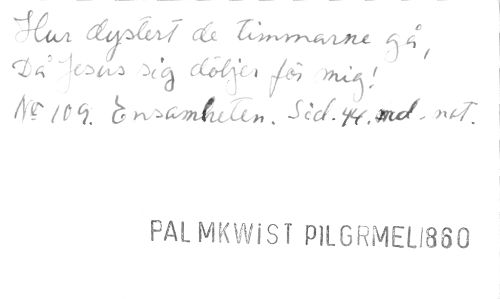 Hur dystert de timmarne gå,
Då Jesus sig döljer för mig!
No 109. Ensamheten. Sid. 44. md. not.
PALMKWIST PILGRMEL 1860